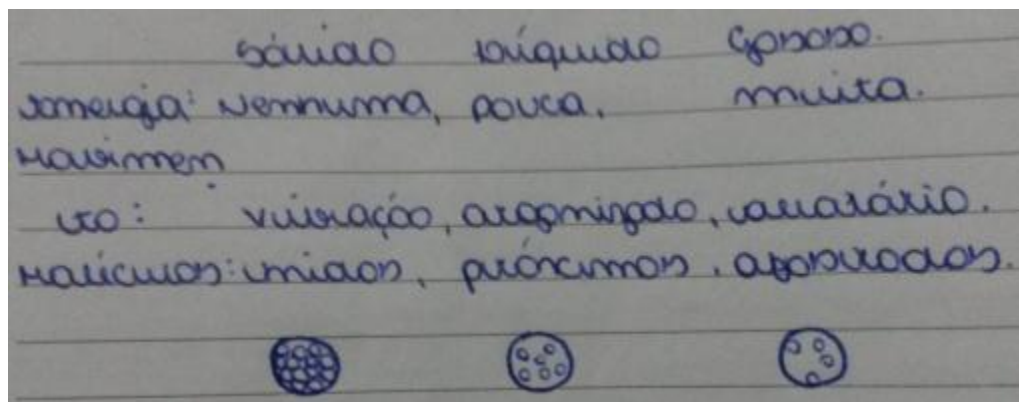 sólido líquido gasoso.
energia: Nenhuma, pouca, muita.
Movimen
to: vibração, organizado, aleatório.
Moléculas: unidos, próximos, afastados.